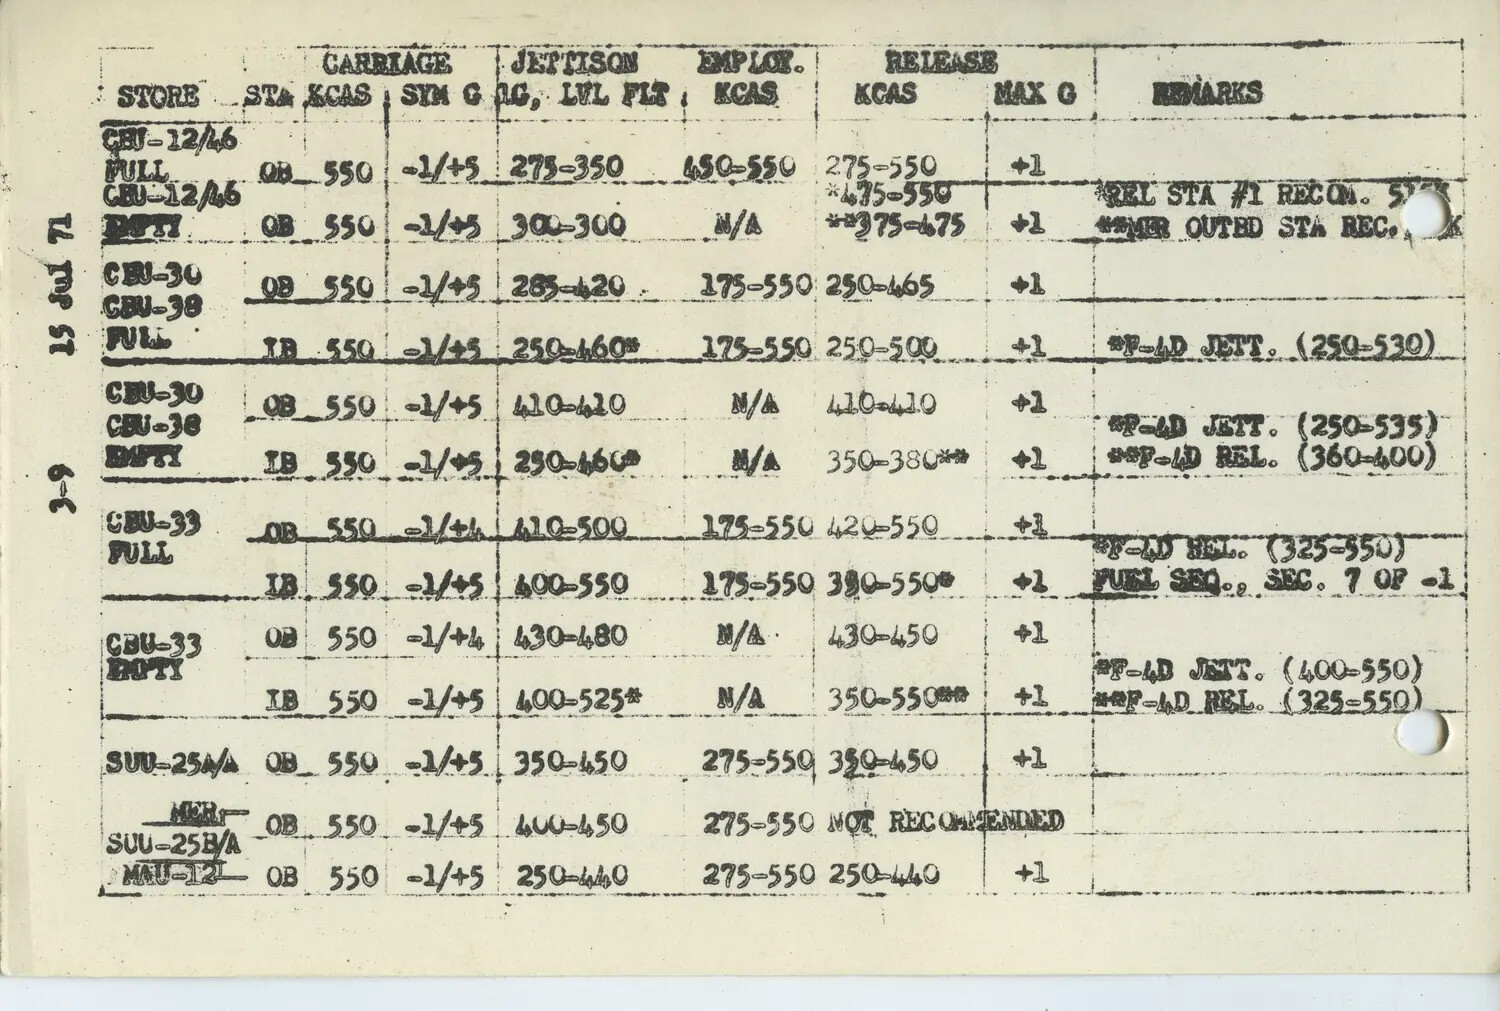 CARRIAGE JETTISON EMPLOY. RELEASE
STORE STA KCAS SYM G 1G, LVL FLT KCAS KCAS MAX G REMARKS
CBU-12/46
FULL OB 550 -1/+5 275-350 450-550 275-550 +1
CBU-12/46 *475-550 *REL STA #1 RECOM.
EMPTY OB 550 -1/+5 300-300 N/A **375-475 +1 **MER OUTBD STA REC.
CBU-30 OB 550 -1/+5 285-420 175-550 250-465 +1
CBU-38
FULL IB 550 -1/+5 250-460* 175-550 250-500 +1 *F-4D JETT. (250-530)
CBU-30 OB 550 -1/+5 410-410 N/A 410-410 +1
CBU-38 *F-4D JETT. (250-535)
EMPTY IB 550 -1/+5 250-460* N/A 350-380** +1 **F-4D REL. (360-400)
CBU-33 OB 550 -1/+4 410-500 175-550 420-550 +1
FULL *F-4D REL. (325-550)
IB 550 -1/+5 400-550 175-550 350-550* +1 FUEL SEQ., SEC. 7 OF -1
CBU-33 OB 550 -1/+4 430-480 N/A 430-450 +1
EMPTY *F-4D JETT. (400-550)
IB 550 -1/+5 400-525* N/A 350-550** +1 **F-4D REL. (325-550)
SUU-25A/A OB 550 -1/+5 350-450 275-550 350-450 +1
MER OB 550 -1/+5 400-450 275-550 NOT RECOMMENDED
SUU-25B/A
MAU-12 OB 550 -1/+5 250-440 275-550 250-440 +1
15 Jul 71
3-9